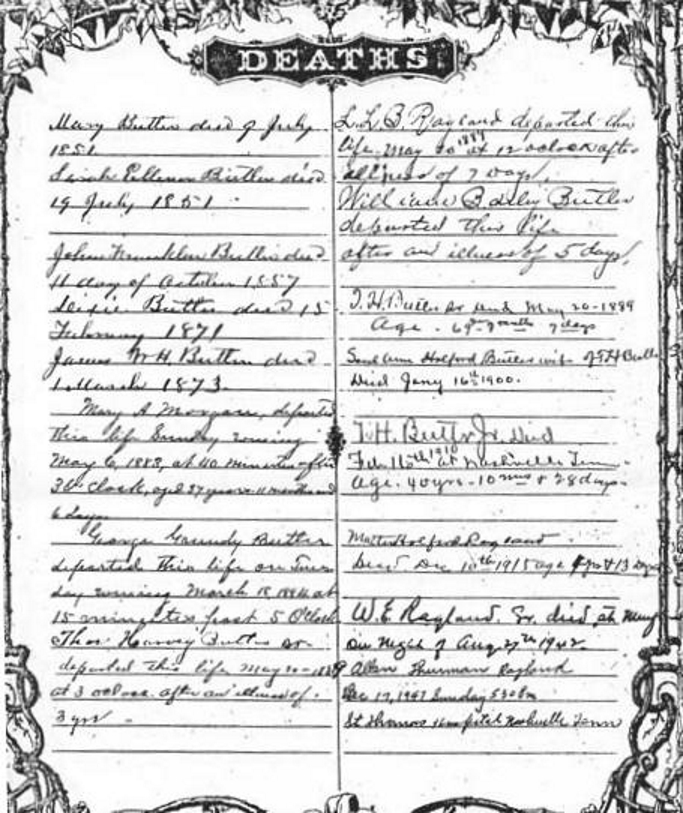 DEATHS
Mary Butler died 9 July
1851
Sarah Ellenor Butler died
19 July 1851
John Franklin Butler died
11 day of October 1557
Butler died 15
February 1871
James W H Butler died
1 March 1873.
Mary A Morgan, departed
this life Sunday evening
May 6, 1883, at 40 minutes after
3 o'clock, aged 57 years 11 months and
6 days
George Butler
departed this life on
day evening March 18 at
15 minutes past 5 O'Clock
Thos. Harvey Butler Sr
departed this life May 20-1889
at 3 oclock after an illness of
3 yrs
L.L.B. Ragland departed this
life May 20 1889 at 12 oclock after
illness of 7 Days.
William Butler
departed this life
after an illness of 5 days.
T.H. Butler Sr died May 20-1889
Age. 69 7 months 7 days
Ann Holford Butler wife of T H Butler
Died Jany 16th 1900.
T.H. Butler Jr. Died
Feb. 1910 at Nashville Tenn
Age. 40 yrs-10 mos & 28 days-
Holford Ragland
Died Dec 10th 1915 age 4 yrs & 13 Days
W.E. Ragland. Sr. died at
on night of Aug 27th 1942
Allen Thurman Ragland
Dec 17, 1947 Sunday
St Thomas Hospital Nashville Tenn